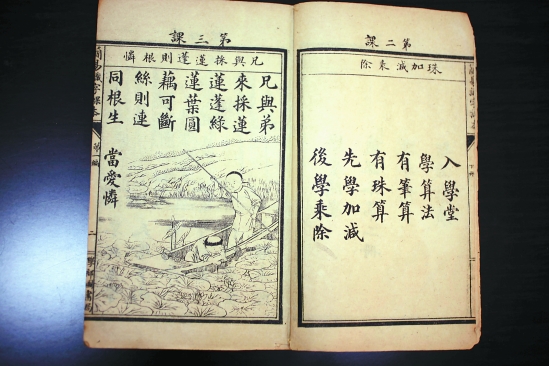 第二課
珠加減乘除
入學堂
學算法
有筆算
有珠算
先學加減
後學乘除
第三課
兄與採蓮蓬則根憐
兄與弟
來採蓮
蓮蓬綠
蓮葉圓
藕可斷
絲則連
同根生 當愛憐